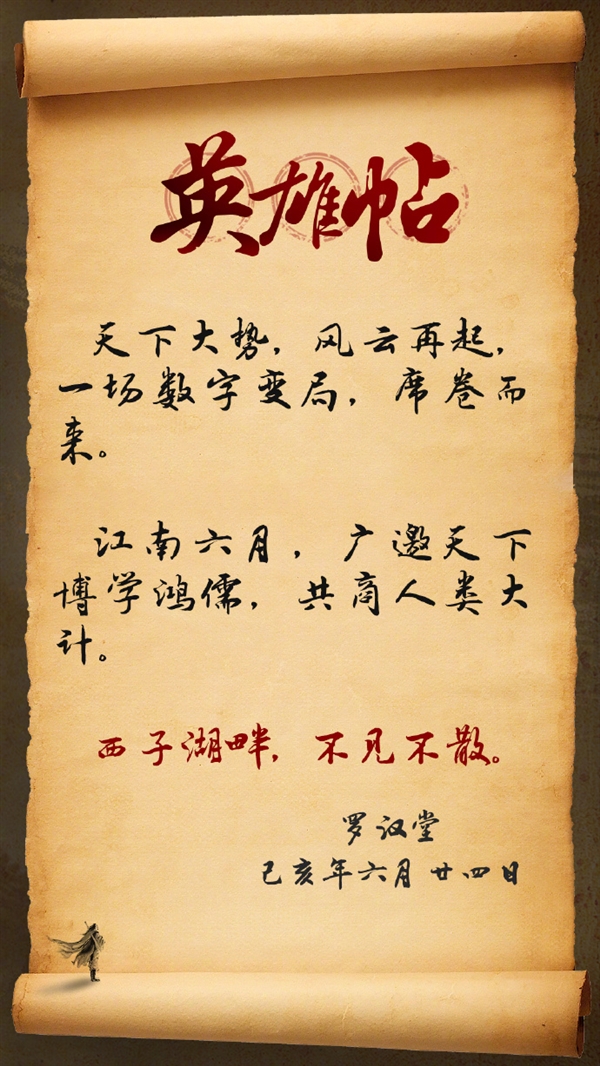 英雄帖
天下大势，风云再起，
一场数字变局，席卷而
来。
江南六月，广邀天下
博学鸿儒，共商人类大
计。
西子湖畔，不见不散。
罗汉堂
己亥年六月廿四日